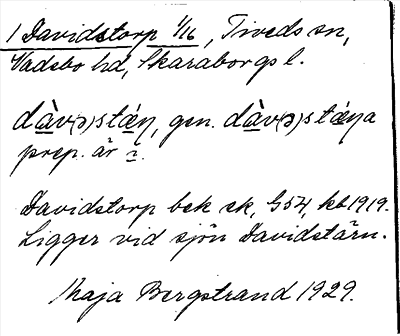 1 Davidstorp 1/16, Tiveds sn,
Vadsbo hd, Skaraborgs l.
dàv(ə)stǽn, gen. dàv(ə)stǽna
prep. är i.
Davidstorp bek sk, G54, kb 1919.
Ligger vid sjön Davidstärn.
Maja Bergstrand 1929.